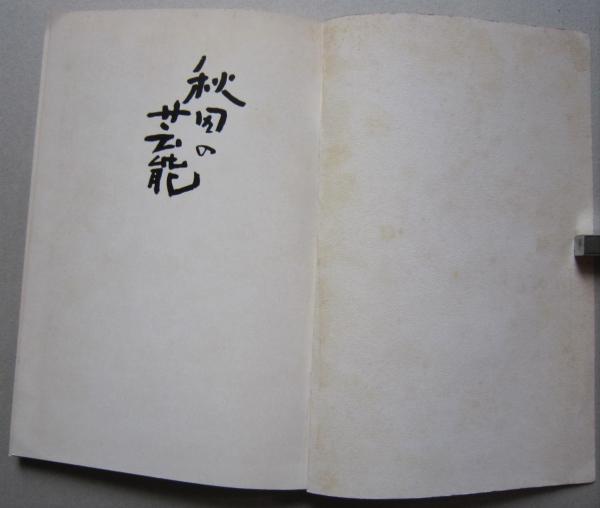 秋田の
芸能